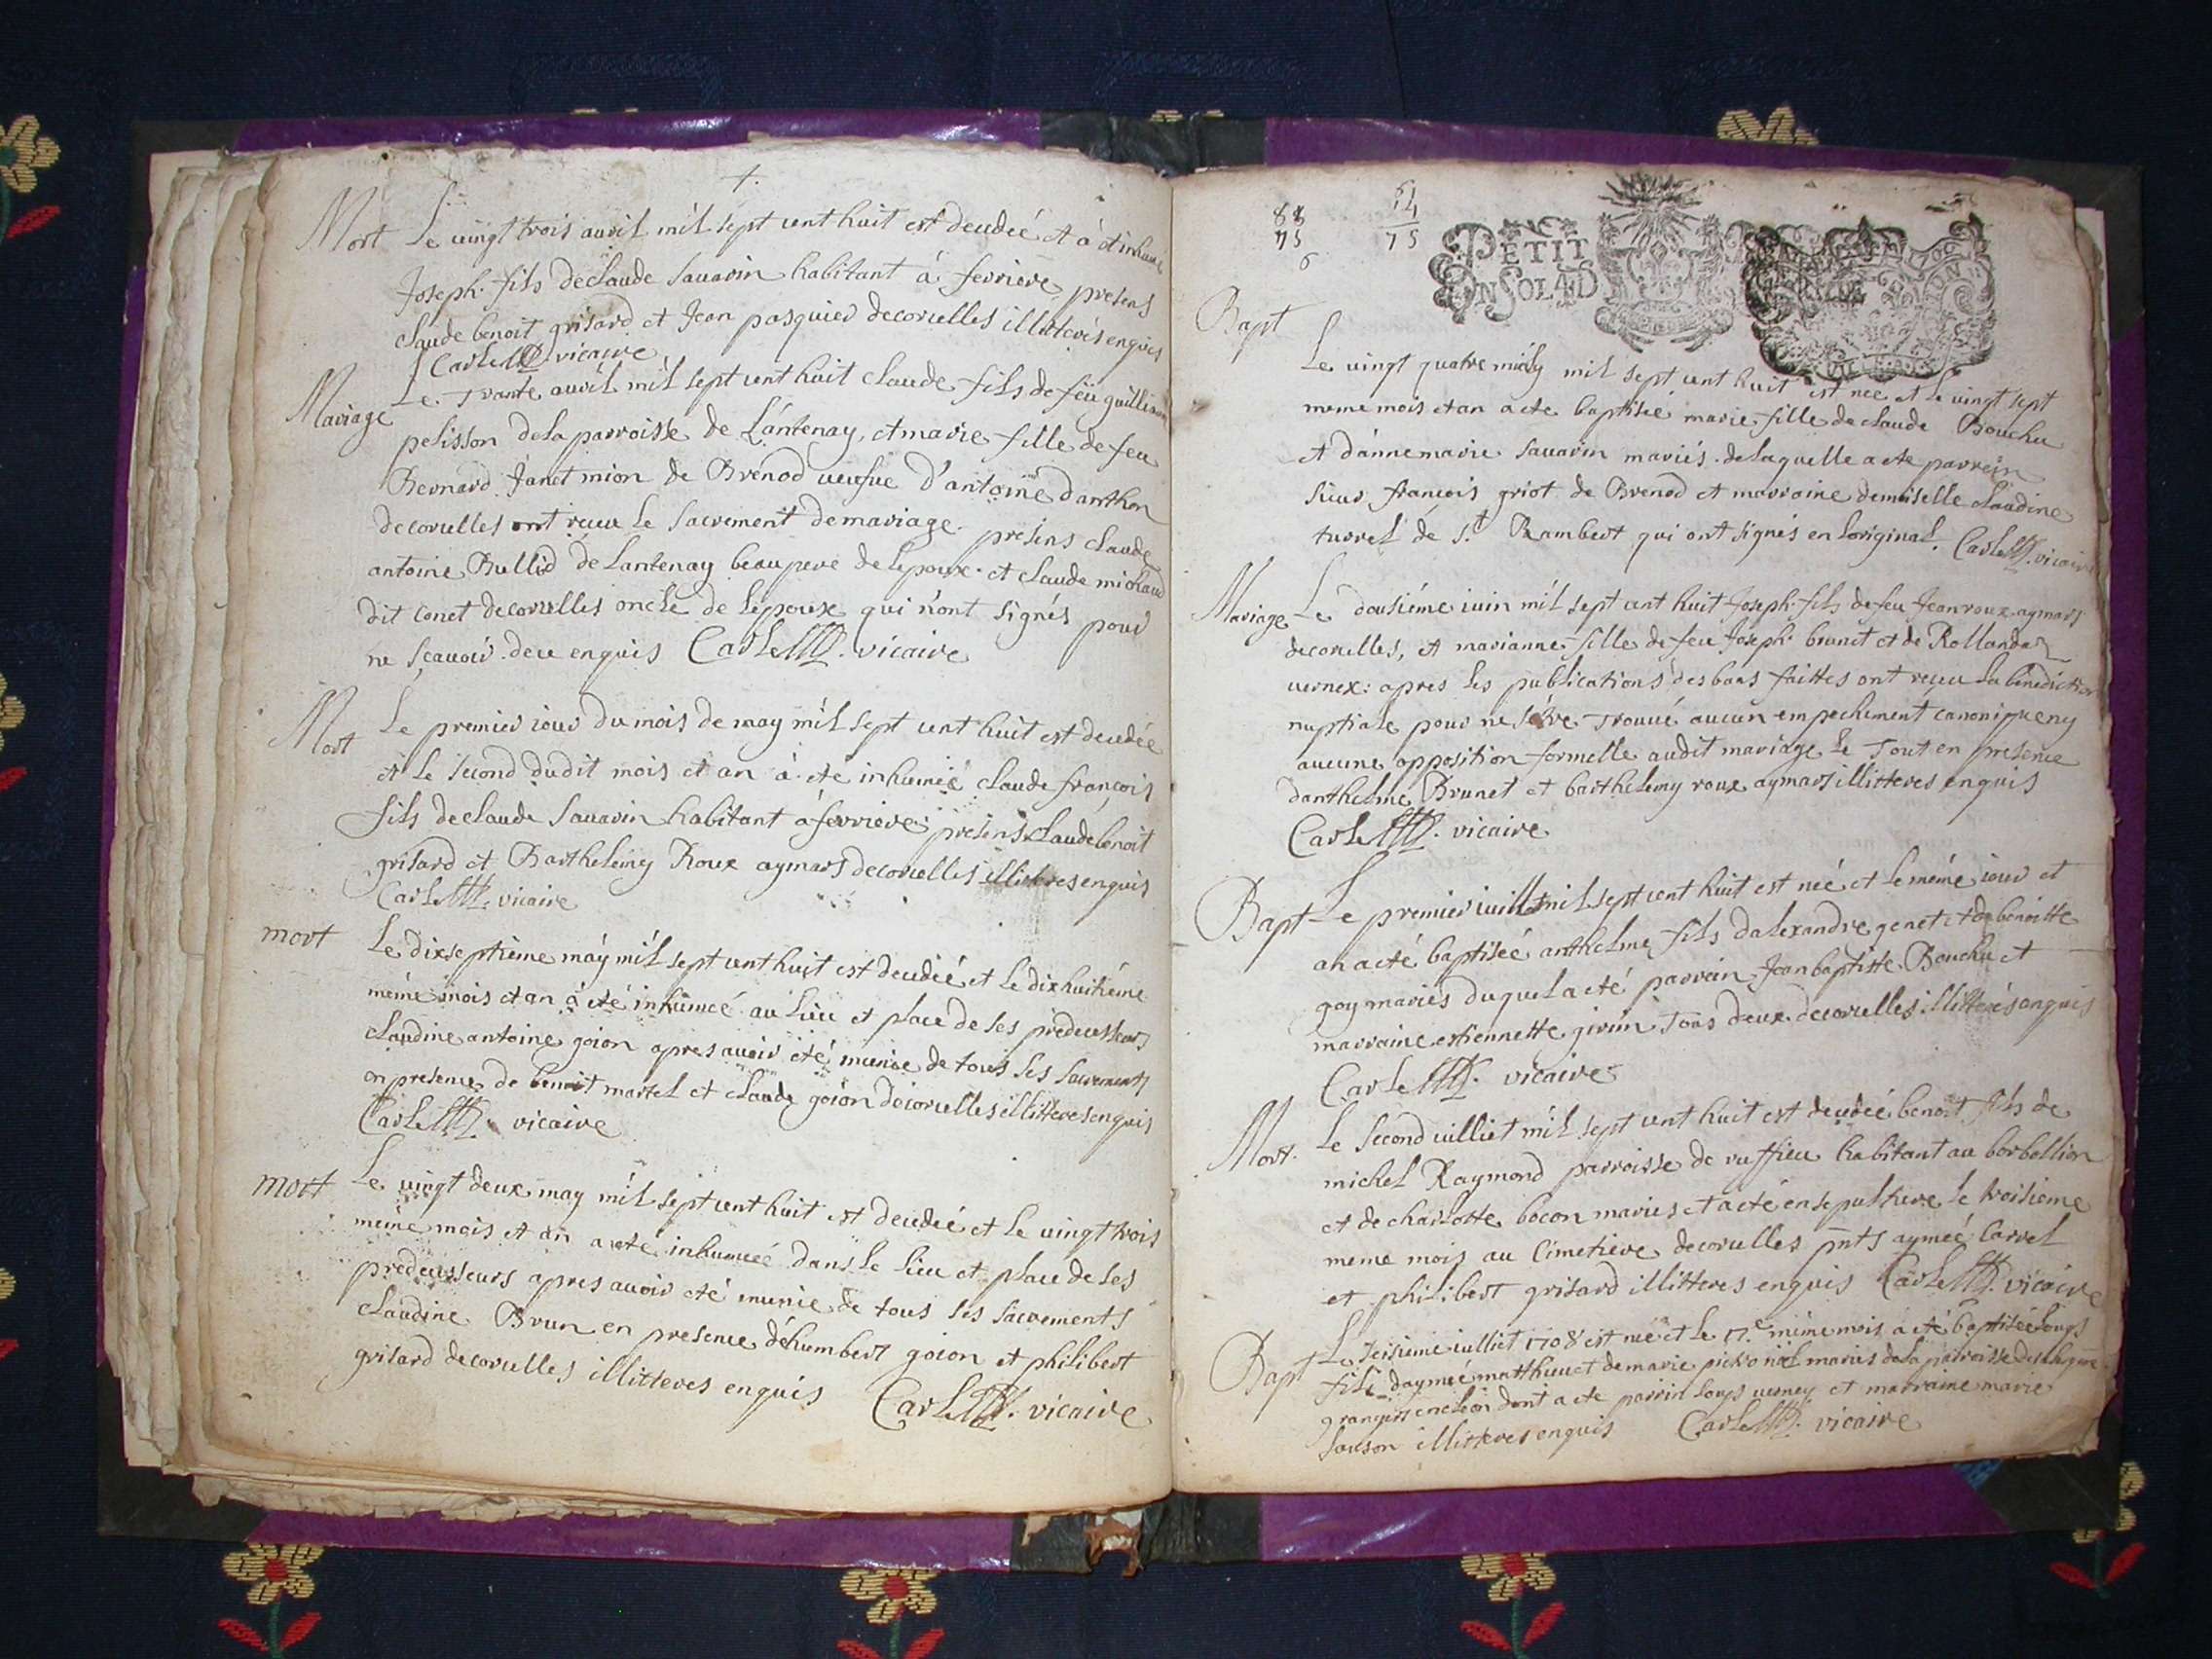 Mort Le vingt trois avril mil sept cent huit est decedéé et à été inhumé
Joseph fils de claude sauarin habitant à ferriere presens
claude benoit grisard et Jean pasquier decorcelles illitterés enquis
Carle vicaire
Mariage Le Trante avril mil sept cent huit claude fils de feu
pelisson dela parroisse de Lantenay, et marie fille de feu
Bernard Janet mion de Brenod veufve d'antoine danthon
decorcelles ont reçeu le sacrement de mariage presens claude
antoine Bullid de Lantenay beaupere de lepoux et claude michaud
dit conet decorcelles oncle de lepouse qui n'ont signés pour
ne sçauoir dece enquis Carle vicaire
Mort Le premier iour du mois de may mil sept cent huit est decedéé
et le second dudit mois et an à été inhuméé claude françois
fils declaude sauarin habitant à ferriere presens claude benoit
grisard et Barthelemy Roux aymars decorcelles illitteres enquis
Carle vicaire
mort Le dixseptième may mil sept cent huit est decedéé et le dixhuitiéme
méme mois et an à eté inhuméé au lieu et place de ses predecesseurs
claudine antoine goion apres auoir eté munie de tous ses sacrements
en presence de benoit martel et claude goion decorcelles illitteres enquis
Carle vicaire
mort Le vingt deux may mil sept cent huit est decedéé et le vingt trois
méme mois et an a eté inhuméé dans le lieu et place de ses
predecesseurs apres auoir eté munie de tous ses sacrements
claudine Brun en presence déhumbert goion et philibert
grisard decorcelles illitteres enquis Carle vicaire
88 64
75 75
6
PETIT
EN SOL 4 D
Bapt Le vingt quatre may mil sept cent huit est nee et le vingt sept
meme mois et an a ete baptiséé marie fille de claude Bouchu
et d'anne marie sauarin mariés de laquelle a ete parrein
sieur françois griot de Brenod et marraine demoiselle claudine
turrel de St Rambert qui ont signés en loriginal. Carle vicaire
Mariage Le dousiéme iuin mil sept cent huit Joseph fils de feu Jean roux aymars
decorcelles, et marianne fille de feu Joseph brunet et de Rollanda
vernex: apres les publications des bans faittes ont reçeu la benediction
nuptiale pour ne setre Trouué aucun empechement canonique ny
aucune opposition formelle audit mariage le Tout en presence
danthelme Brunet et barthelemy roux aymars illitteres enquis
Carle vicaire
Bapt Le premier iuillet mil sept cent huit est néé et leméme iour et
an a eté baptiséé anthelme fils dalexandre genet et de benoitte
goy mariés duquel a eté parrein Jean baptiste Bouchu et
marraine estiennette Tous deux decorcelles illitterés enquis
Carle vicaire
Mort. Le second iulliet mil sept cent huit est decedéé benoit fils de
michel Raymond parroisse de ruffieu habitant au borbollion
et de charlotte bocon mariés et a eté ensepulturé le troisieme
meme mois au Cimetiere decorcelles pnts ayméé Carrel
et philibert grisard illitteres enquis Carle vicaire
Bapt Le seisieme iulliet 1708 est néé et le 17e méme mois à été baptiséé Loups
fils dayméé matthieu et de marie mariés dela parroisse
grangers dont a ete parrin Loups et marraine marie
illitteres enquis Carle vicaire